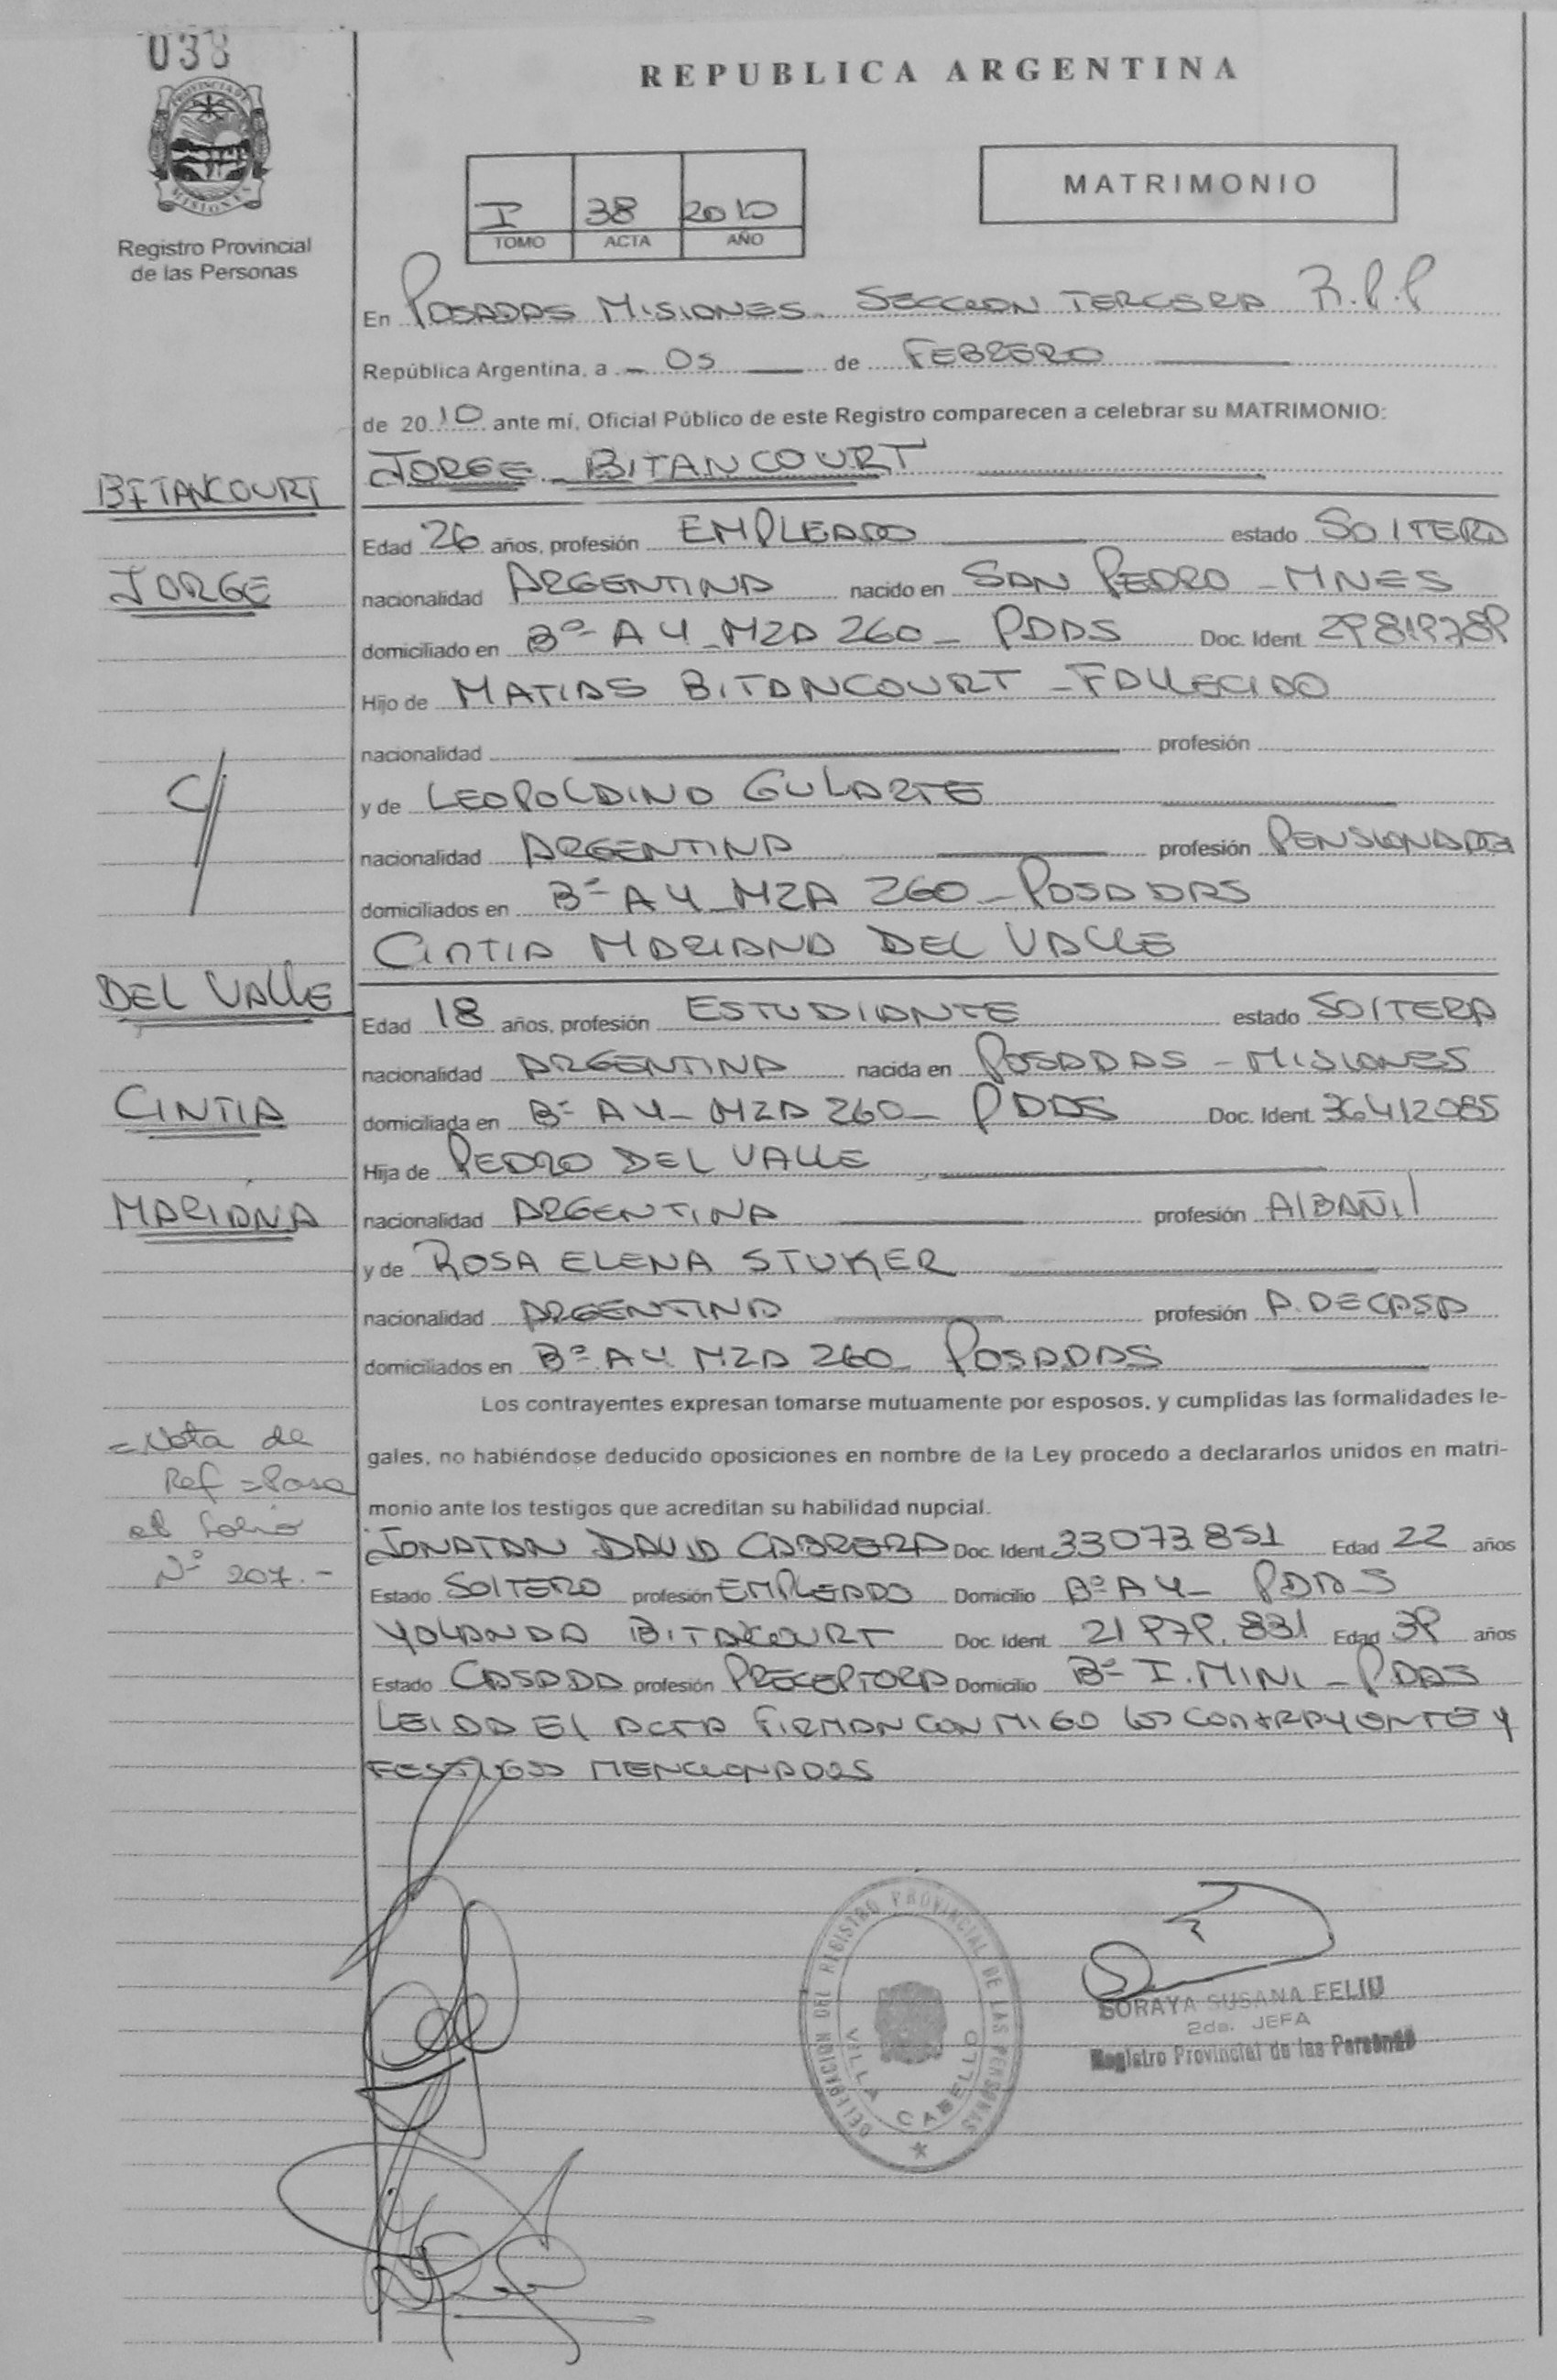 038
PROVINCIA DE
MISIONES
Registro Provincial
de las Personas
REPUBLICA ARGENTINA
MATRIMONIO
I 38 2010
TOMO ACTA AÑO
En POSADAS MISIONES. SECCION TERCERA R.P.P
República Argentina, a 05 de FEBRERO
de 2010 ante mí, Oficial Público de este Registro comparecen a celebrar su MATRIMONIO:
JORGE BITANCOURT
BITANCOURT
Edad 26 años, profesión EMPLEADO estado SOLTERO
JORGE
nacionalidad ARGENTINA nacido en SAN PEDRO - MNES
domiciliado en Bº A4 - MZA 260 - PDAS Doc. Ident. 29819789
Hijo de MATIAS BITANCOURT - FALLECIDO
nacionalidad profesión
C/
y de LEOPOLDINO GULARTE
nacionalidad ARGENTINA profesión PENSIONADA
domiciliados en Bº A4 - MZA 260 - POSADAS
CINTIA MARIANA DEL VALLE
DEL VALLE
Edad 18 años, profesión ESTUDIANTE estado SOLTERA
nacionalidad ARGENTINA nacida en POSADAS - MISIONES
CINTIA
domiciliada en Bº A4 - MZA 260 - PDAS Doc. Ident. 36412085
Hija de PEDRO DEL VALLE
MARIANA
nacionalidad ARGENTINA profesión ALBAÑIL
y de ROSA ELENA STUKER
nacionalidad ARGENTINA profesión A. DE CASA
domiciliados en Bº A4 MZA 260 - POSADAS
Los contrayentes expresan tomarse mutuamente por esposos, y cumplidas las formalidades le-
gales, no habiéndose deducido oposiciones en nombre de la Ley procedo a declararlos unidos en matri-
monio ante los testigos que acreditan su habilidad nupcial.
= Nota de
Ref = Pasa
al folio
Nº 207.-
JONATAN DAVID CABRERA Doc. Ident. 33073851 Edad 22 años
Estado SOLTERO profesión EMPLEADO Domicilio Bº A4 - PDAS
YOLANDA BITACOURT Doc. Ident. 21979.831 Edad 39 años
Estado CASADA profesión PRECEPTORA Domicilio Bº I. MINI - PDAS
LEIDA EL ACTA FIRMAN CONMIGO los CONTRAYENTE Y
TESTIGOS MENCIONADOS
DELEGACION DEL REGISTRO PROVINCIAL DE LAS PERSONAS
VILLA CABELLO
SORAYA SUSANA FELIU
2da. JEFA
Registro Provincial de las Personas